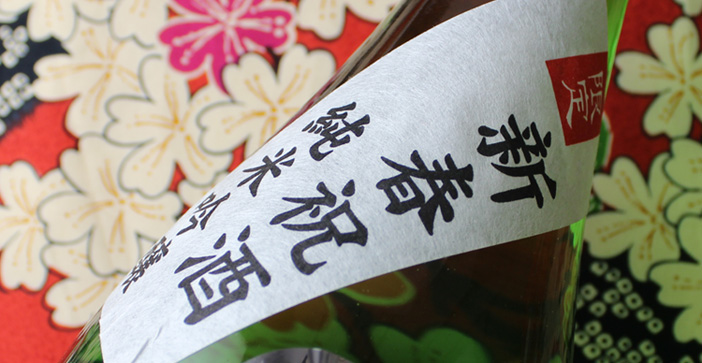 限定
新春祝酒
純米吟醸